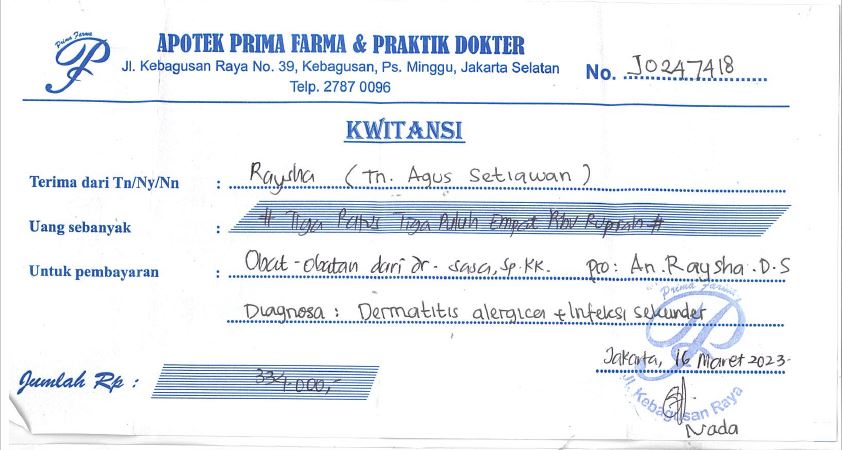 Prima Farma
APOTEK PRIMA FARMA & PRAKTIK DOKTER
Jl. Kebagusan Raya No. 39, Kebagusan, Ps. Minggu, Jakarta Selatan
Telp. 2787 0096
No. J0247418
KWITANSI
Terima dari Tn/Ny/Nn : Raysha (Tn. Agus Setiawan)
Uang sebanyak : # Tiga Ratus Tiga Puluh Empat Ribu Rupiah #
Untuk pembayaran : Obat-obatan dari dr. sasa, Sp.KK. pro: An. Raysha.D.S
Diagnosa : Dermatitis alergica + Infeksi sekunder
Prima Farma
Jakarta, 16 Maret 2023
Jumlah Rp : 334.000,-
Jl. Kebagusan Raya
Nada